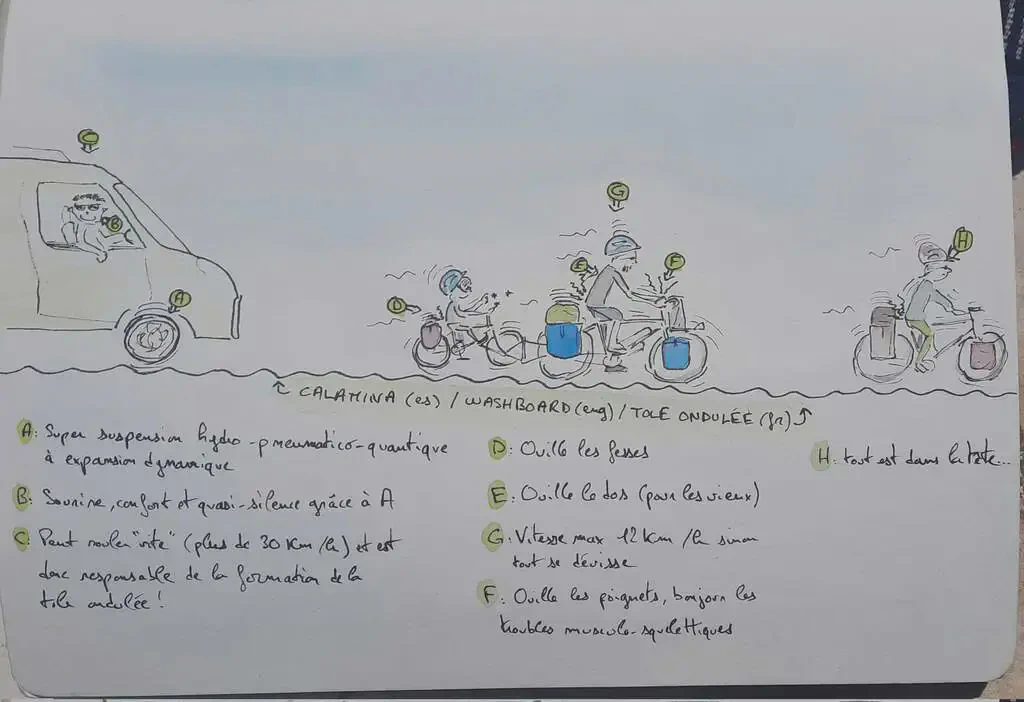 C
B
A
D
E
G
F
H
CALAMINA (es) / WASHBOARD (eng) / TOLE ONDULÉE (fr)
A: Super suspension hydro-pneumatico-quantique
à expansion dynamique
B: Sourire, confort et quasi-silence grâce à A
C: Peut rouler "vite" (plus de 30 Km/h) et est
donc responsable de la formation de la
tole ondulée!
D: Ouille les fesses
E: Ouille le dos (pour les vieux)
G: Vitesse max 12 km/h sinon
tout se dévisse
F: Ouille les poignets, bonjour les
troubles musculo-squelettiques
H: tout est dans la tête...